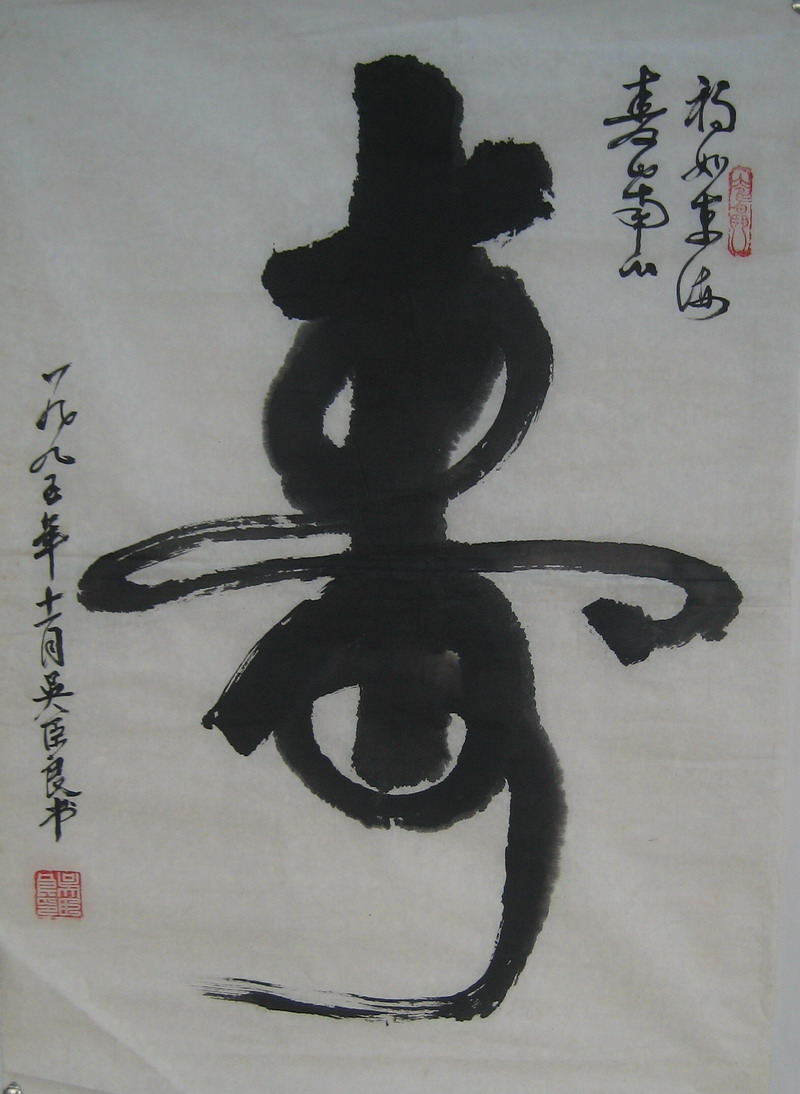 福如东海
寿比南山
寿
一九九五年十一月吴臣良书